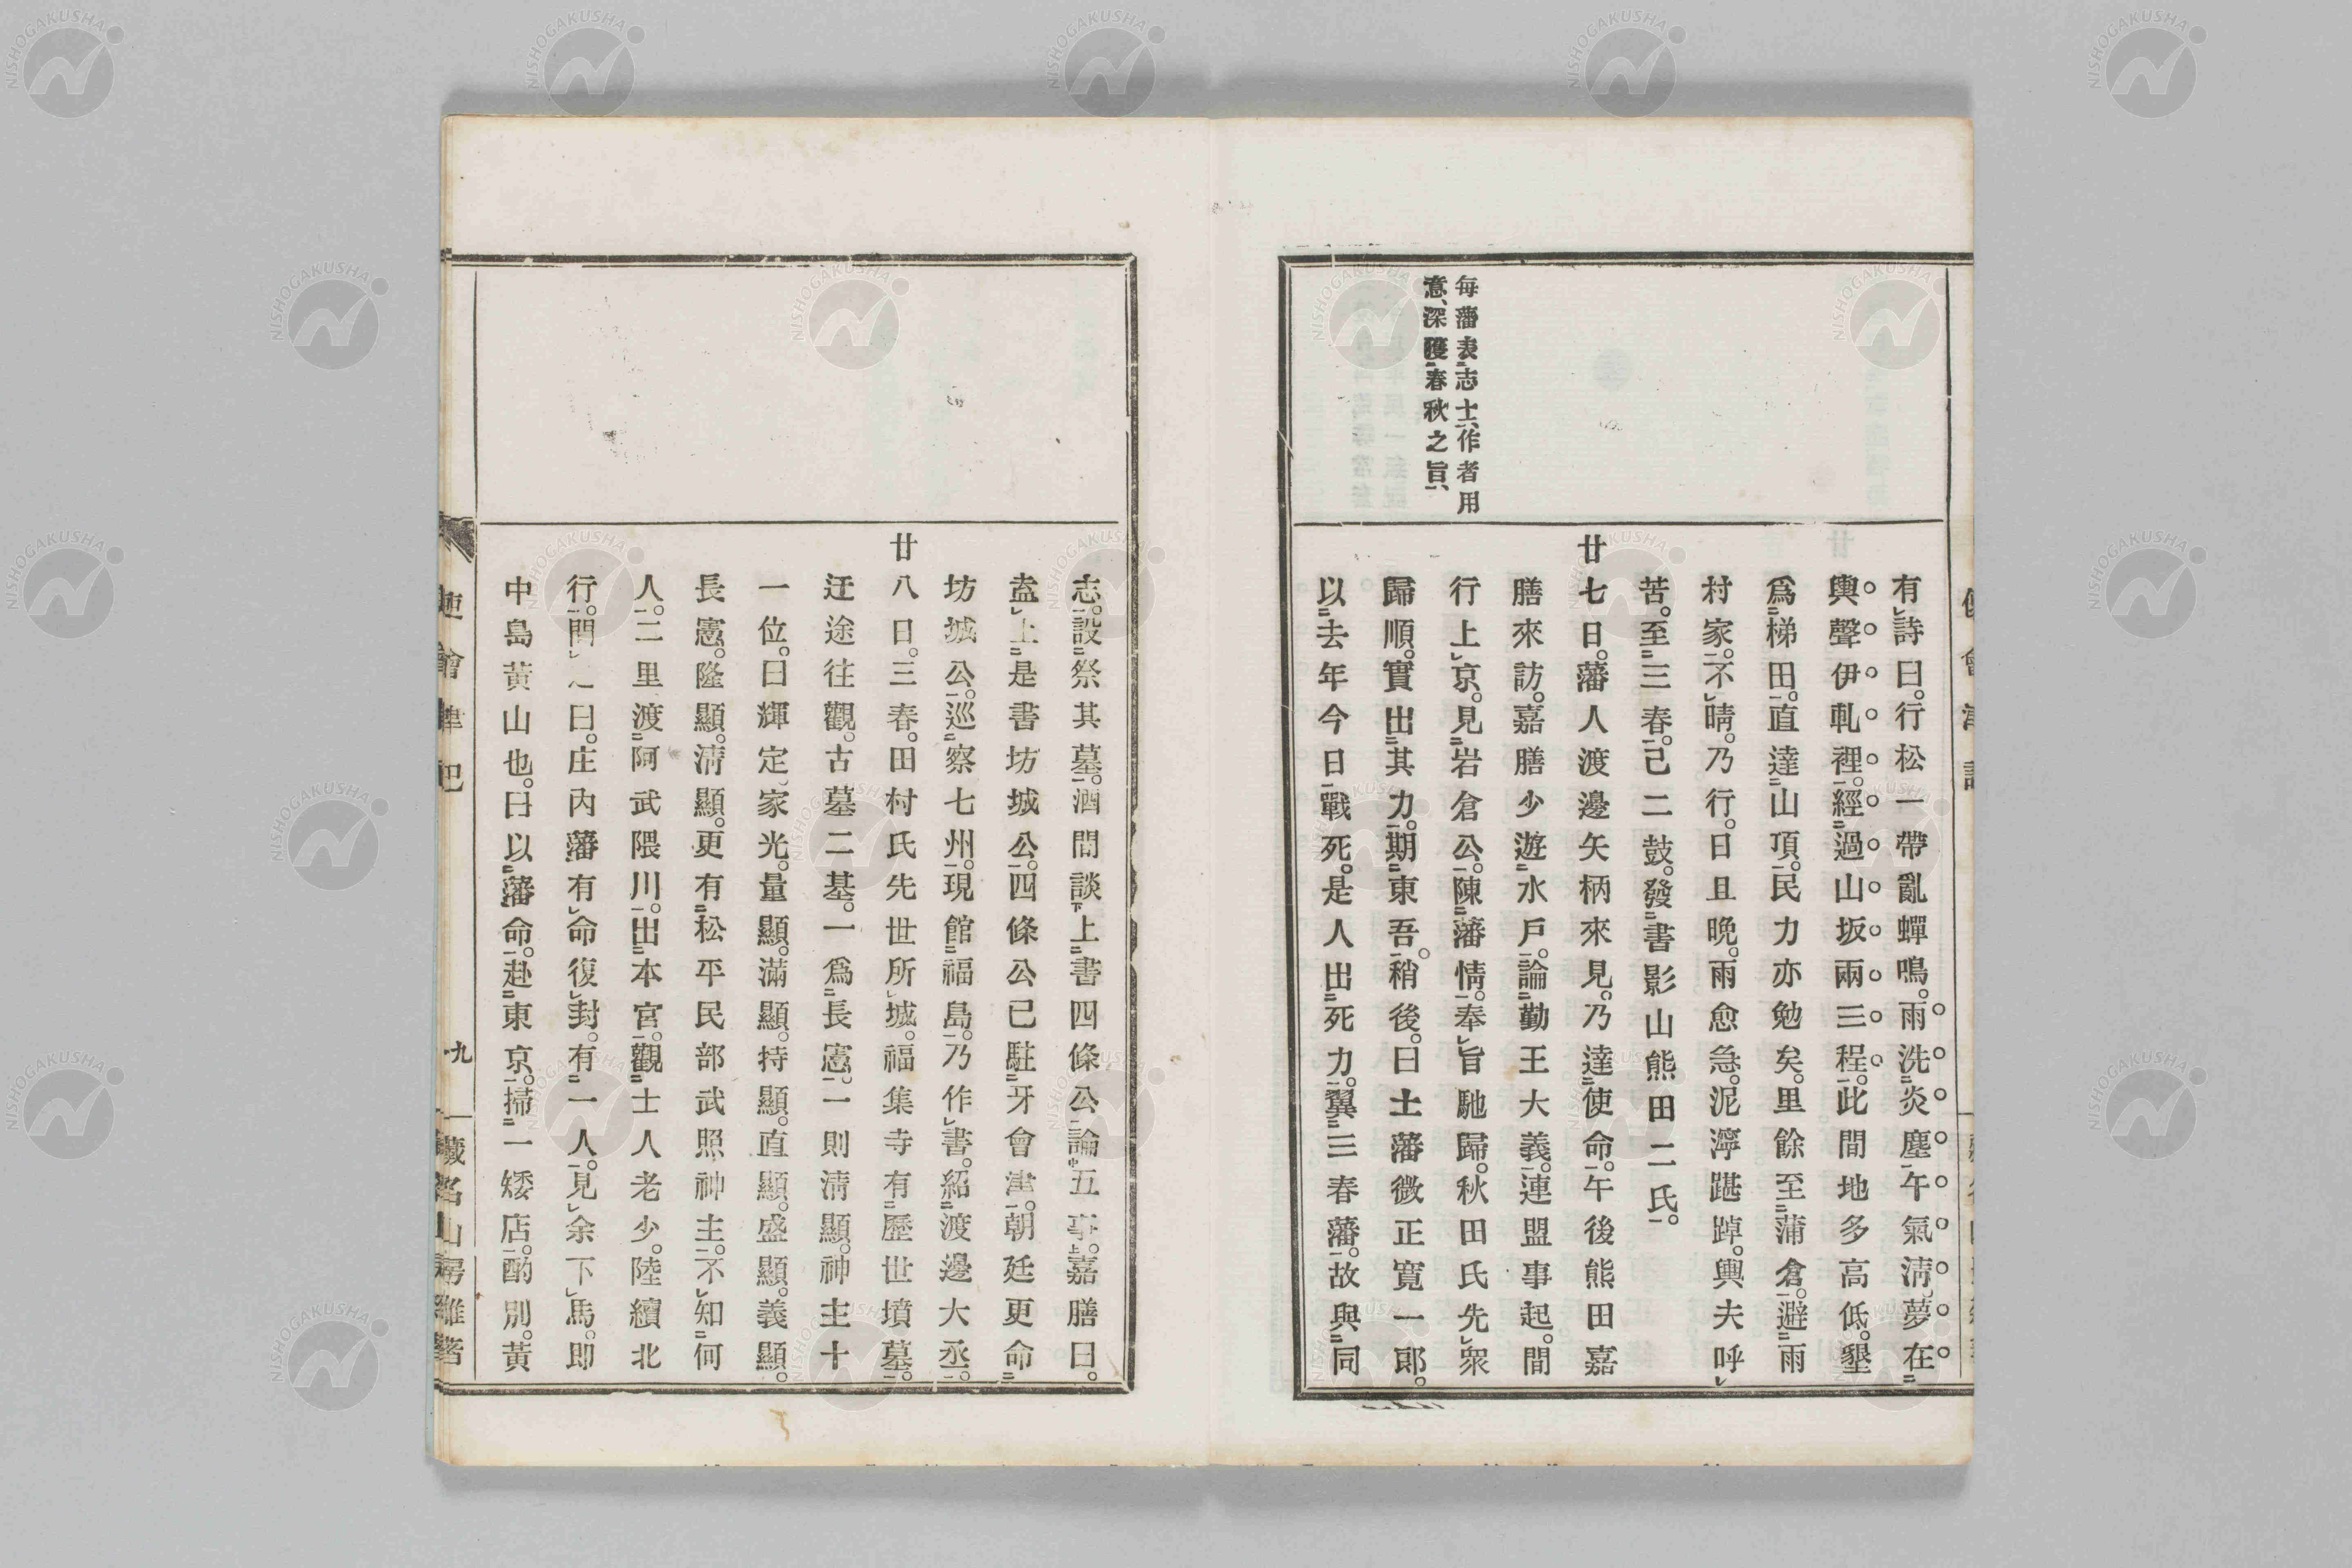 每藩表志士、作者用
意、深獲春秋之旨、
有詩曰。行松一帶亂蟬鳴。雨洗炎塵午氣淸。夢在
輿聲伊軋裡。經過山坂兩三程。此間地多高低。墾
爲梯田。直達山頂。民力亦勉矣。里餘至蒲倉。避雨
村家。不晴。乃行。日且晩。雨愈急。泥濘踸踔。輿夫呼
苦。至三春。已二鼓。發書影山熊田二氏。
廿七日。藩人渡邊矢柄來見。乃達使命。午後熊田嘉
膳來訪。嘉膳少遊水戶。論勤王大義。連盟事起。間
行上京。見岩倉公。陳藩情。奉旨馳歸。秋田氏先衆
歸順。實出其力。期東吾。稍後。曰土藩微正寬一郎。
以去年今日戰死。是人出死力。翼三春藩。故與同
志。設祭其墓。酒間談上書四條公論五事。嘉膳曰。
盍上是書坊城公。四條公已駐牙會津。朝廷更命
坊城公。巡察七州。現館福島。乃作書。紹渡邊大丞。
廿八日。三春。田村氏先世所城。福集寺有歷世墳墓。
迂途往觀。古墓二基。一爲長憲。一則淸顯。神主十
一位。曰輝定家光。量顯。滿顯。持顯。直顯。盛顯。義顯。
長憲。隆顯。淸顯。更有松平民部武照神主。不知何
人。二里渡阿武隈川。出本宮。觀士人老少。陸續北
行。問之曰。庄內藩有命復封。有一人。見余下馬。卽
中島黃山也。曰以藩命。赴東京。掃一矮店。酌別。黃
九
NISHOGAKUSHA